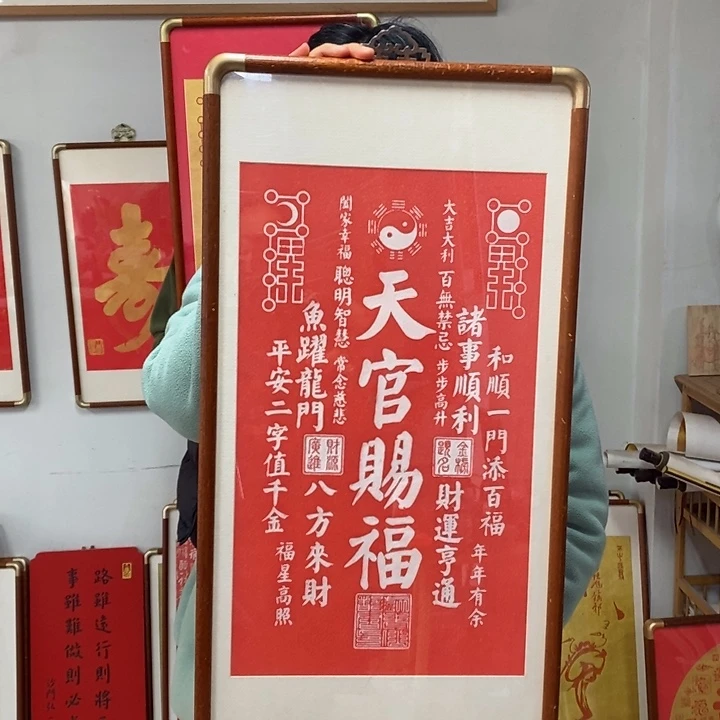 天官賜福
和順一門添百福
年年有余
諸事順利
金榜題名
財運亨通
大吉大利
百無禁忌
步步高升
闔家幸福
聰明智慧
常念慈悲
魚躍龍門
財源廣進
八方來財
平安二字值千金
福星高照
壽
路雖遠行則將
事雖難做則必